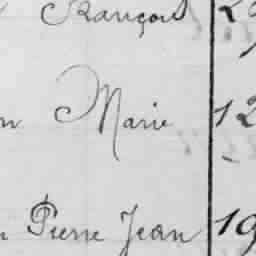 François 2
n Marie 12
n Pierre Jean 19